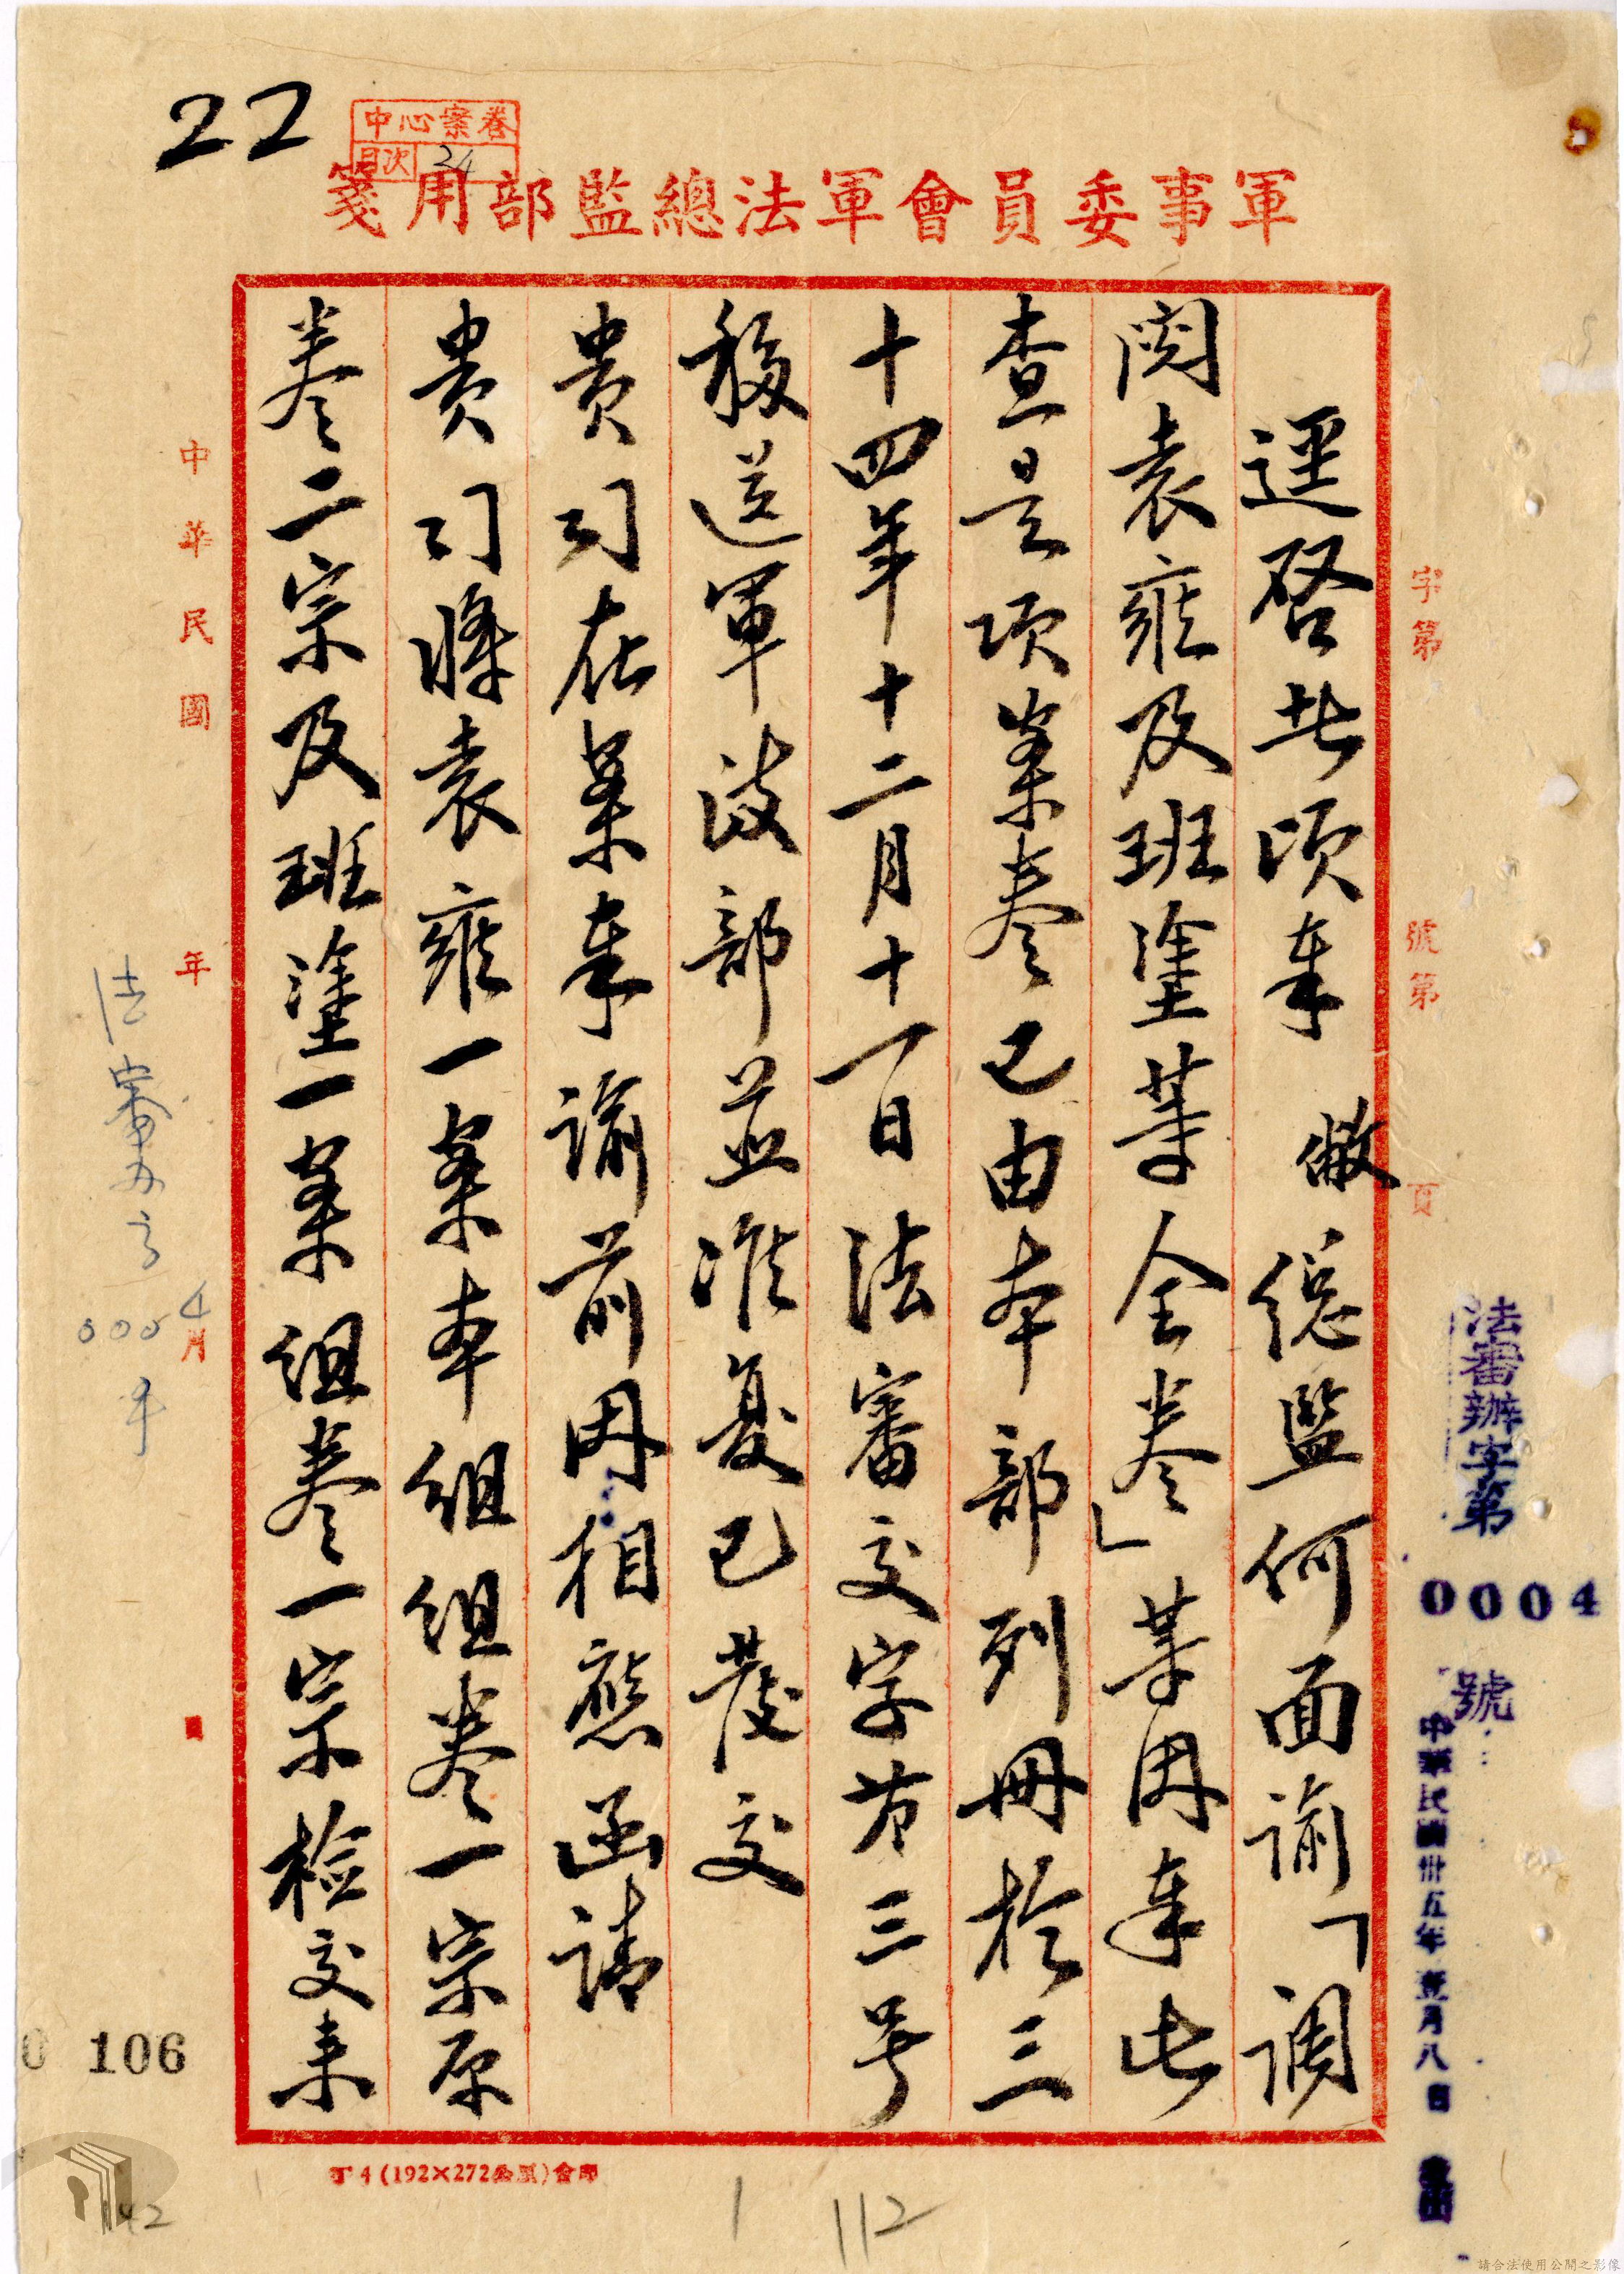 22
中心案卷
目次 24
軍事委員會軍法總監部用箋
字第 號第 頁
法審辦字第
0004
號
中華民國卅五年壹月八日
逕啓者頃奉 敝總監何面諭「調
閱袁雍及班淦等全卷」等因奉此
查是項案卷已由本部列冊於三
十四年十二月十一日法審交字第三号
移送軍政部並准复已發交
貴司在案奉諭前因相應函請
貴司將袁雍一案本組組卷一宗原
卷二宗及班淦一案組卷一宗檢交来
中華民國 年 月
4
法審办字
0004
106
丁4(192×272公厘)會印
1
112
142
請合法使用公開之影像